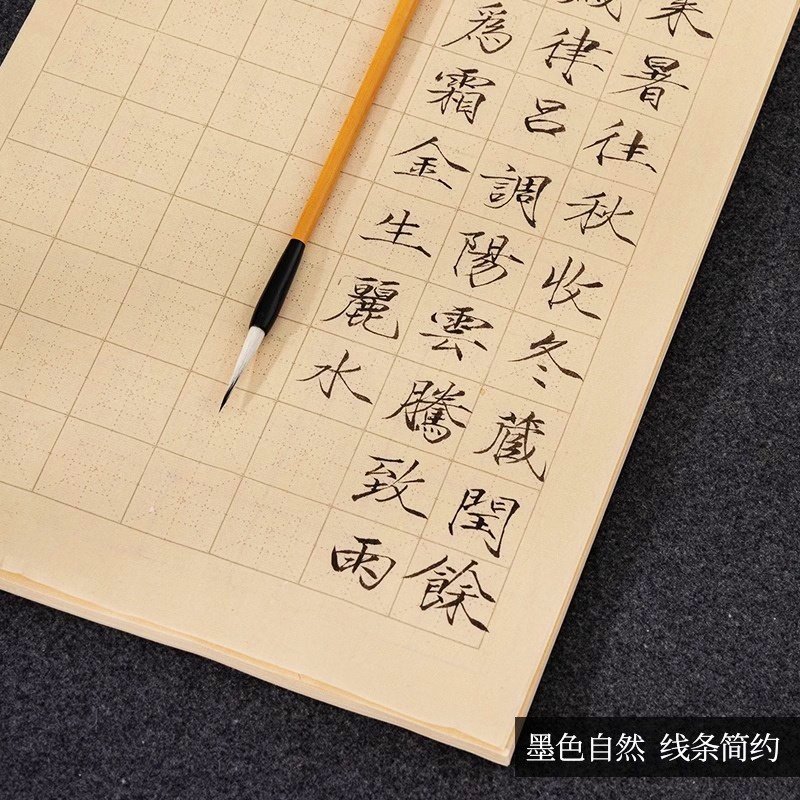 來暑往秋收冬藏閏餘
歲律呂調陽雲騰致雨
爲霜金生麗水
墨色自然 线条简约